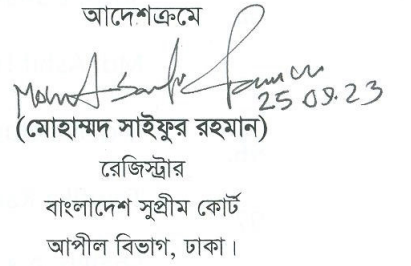 আদেশক্রমে
25.09.23
(মোহাম্মদ সাইফুর রহমান)
রেজিস্ট্রার
বাংলাদেশ সুপ্রীম কোর্ট
আপীল বিভাগ, ঢাকা।